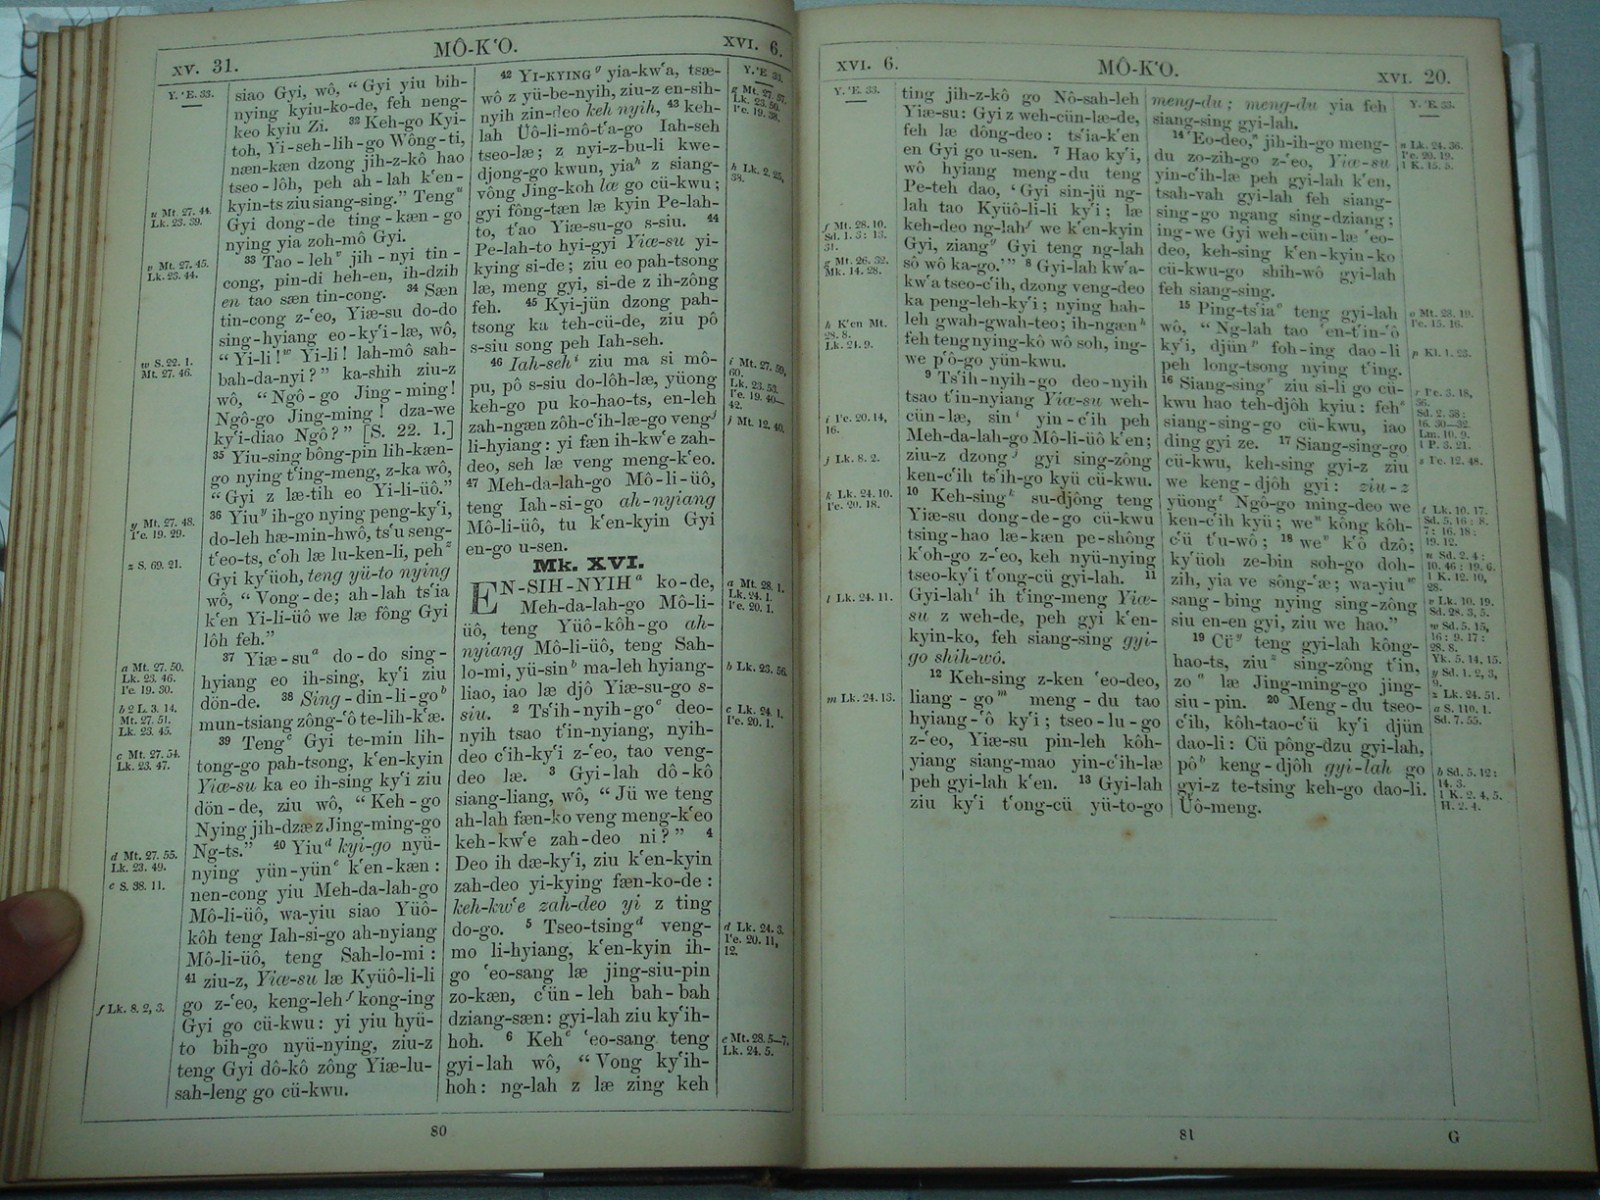 XV. 31.
MÔ-K‘O.
XVI. 6.
Y. ‘E. 33.
u Mt. 27. 44.
Lk. 23. 39.
v Mt. 27. 45.
Lk. 23. 44.
w S. 22. 1.
Mt. 27. 46.
y Mt. 27. 48.
I‘e. 19. 29.
z S. 69. 21.
a Mt. 27. 50.
Lk. 23. 46.
I‘e. 19. 30.
b 2 L. 3. 14.
Mt. 27. 51.
Lk. 23. 45.
c Mt. 27. 54.
Lk. 23. 47.
d Mt. 27. 55.
Lk. 23. 49.
e S. 38. 11.
f Lk. 8. 2, 3.
siao Gyi, wô, “Gyi yiu bih-
nying kyiu-ko-de, feh neng-
keo kyiu Zi. 32 Keh-go Kyi-
toh, Yi-seh-lih-go Wông-ti,
næn-kæn dzong jih-z-kô hao
tseo-lôh, peh ah-lah k‘en-
kyin-ts ziu siang-sing.” Teng u
Gyi dong-de ting-kæn-go
nying yia zoh-mô Gyi.
33 Tao-leh v jih-nyi tin-
cong, pin-di heh-en, ih-dzih
en tao sæn tin-cong. 34 Sæn
tin-cong z-‘eo, Yiæ-su do-do
sing-hyiang eo-ky‘i-læ, wô,
“Yi-li! w Yi-li! lah-mô sah-
bah-da-nyi?” ka-shih ziu-z
wô, “Ngô-go Jing-ming!
Ngô-go Jing-ming! dza-we
ky‘i-diao Ngô?” [S. 22. 1.]
35 Yiu-sing bông-pin lih-kæn-
go nying t‘ing-meng, z-ka wô,
“Gyi z læ-tih eo Yi-li-üô.”
36 Yiu y ih-go nying peng-ky‘i,
do-leh hæ-min-hwô, ts‘u seng-
t‘eo-ts, c‘oh læ lu-ken-li, peh z
Gyi ky‘üoh, teng yü-to nying
wô, “Vong-de; ah-lah ts‘ia
k‘en Yi-li-üô we læ fông Gyi
lôh feh.”
37 Yiæ-su a do-do sing-
hyiang eo ih-sing, ky‘i ziu
dön-de. 38 Sing-din-li-go b
mun-tsiang zông-‘ô te-lih-k‘æ.
39 Teng c Gyi te-min lih-
tong-go pah-tsong, k‘en-kyin
Yiæ-su ka eo ih-sing ky‘i ziu
dön-de, ziu wô, “Keh-go
Nying jih-dzæ z Jing-ming-go
Ng-ts.” 40 Yiu d kyi-go nyü-
nying yün-yün e k‘en-kæn:
nen-cong yiu Meh-da-lah-go
Mô-li-üô, wa-yiu siao Yüô-
kôh teng Iah-si-go ah-nyiang
Mô-li-üô, teng Sah-lo-mi:
41 ziu-z, Yiæ-su læ Kyüô-li-li
go z-‘eo, keng-leh f kong-ing
Gyi go cü-kwu: yi yiu hyü-
to bih-go nyü-nying, ziu-z
teng Gyi dô-kô zông Yiæ-lu-
sah-leng go cü-kwu.
42 YI-KYING g yia-kw‘a, tsæ-
wô z yü-be-nyih, ziu-z en-sih-
nyih zin-deo keh nyih, 43 keh-
lah Üô-li-mô-t‘a-go Iah-seh
tseo-læ; z nyi-z-bu-li kwe-
djong-go kwun, yia h z siang-
vông Jing-koh læ go cü-kwu;
gyi fông-tæn læ kyin Pe-lah-
to, t‘ao Yiæ-su-go s-siu. 44
Pe-lah-to hyi-gyi Yiæ-su yi-
kying si-de; ziu eo pah-tsong
læ, meng gyi, si-de z ih-zông
feh. 45 Kyi-jün dzong pah-
tsong ka teh-cü-de, ziu pô
s-siu song peh Iah-seh.
46 Iah-seh i ziu ma si mô-
pu, pô s-siu do-lôh-læ, yüong
keh-go pu ko-hao-ts, en-leh
zah-ngæn zôh-c‘ih-læ-go veng j
li-hyiang: yi fæn ih-kw‘e zah-
deo, seh læ veng meng-k‘eo.
47 Meh-da-lah-go Mô-li-üô,
teng Iah-si-go ah-nyiang
Mô-li-üô, tu k‘en-kyin Gyi
en-go u-sen.
Mk. XVI.
EN-SIH-NYIH a ko-de,
Meh-da-lah-go Mô-li-
üô, teng Yüô-kôh-go ah-
nyiang Mô-li-üô, teng Sah-
lo-mi, yü-sin b ma-leh hyiang-
liao, iao læ djô Yiæ-su-go s-
siu. 2 Ts‘ih-nyih-go c deo-
nyih tsao t‘in-nyiang, nyih-
deo c‘ih-ky‘i z-‘eo, tao veng-
deo læ. 3 Gyi-lah dô-kô
siang-liang, wô, “Jü we teng
ah-lah fæn-ko veng meng-k‘eo
keh-kw‘e zah-deo ni?” 4
Deo ih dæ-ky‘i, ziu k‘en-kyin
zah-deo yi-kying fæn-ko-de:
keh-kw‘e zah-deo yi z ting
do-go. 5 Tseo-tsing d veng-
mo li-hyiang, k‘en-kyin ih-
go ‘eo-sang læ jing-siu-pin
zo-kæn, c‘ün-leh bah-bah
dziang-sæn: gyi-lah ziu ky‘ih-
hoh. 6 Keh e ‘eo-sang teng
gyi-lah wô, “Vong ky‘ih-
hoh: ng-lah z læ zing keh
Y. ‘E. 33.
g Mt. 27. 57.
Lk. 23. 50.
I‘e. 19. 38.
h Lk. 2. 25,
38.
i Mt. 27. 59,
60.
Lk. 23. 53.
I‘e. 19. 40—
42.
j Mt. 12. 40.
a Mt. 28. 1.
Lk. 24. 1.
I‘e. 20. 1.
b Lk. 23. 56.
c Lk. 24. 1.
I‘e. 20. 1.
d Lk. 24. 3.
I‘e. 20. 11,
12.
e Mt. 28. 5—7.
Lk. 24. 5.
80
XVI. 6.
MÔ-K‘O.
XVI. 20.
Y. ‘E. 33.
f Mt. 28. 10.
Sd. 1. 3: 13.
31.
g Mt. 26. 32.
Mk. 14. 28.
h K‘en Mt.
28. 8.
Lk. 24. 9.
i I‘e. 20. 14,
16.
j Lk. 8. 2.
k Lk. 24. 10.
I‘e. 20. 18.
l Lk. 24. 11.
m Lk. 24. 13.
ting jih-z-kô go Nô-sah-leh
Yiæ-su: Gyi z weh-cün-læ-de,
feh læ dông-deo: ts‘ia-k‘en
en Gyi go u-sen. 7 Hao ky‘i,
wô hyiang meng-du teng
Pe-teh dao, ‘Gyi sin-jü ng-
lah tao Kyüô-li-li ky‘i; læ
keh-deo ng-lah f we k‘en-kyin
Gyi, ziang g Gyi teng ng-lah
sô wô ka-go.’” 8 Gyi-lah kw‘a-
kw‘a tseo-c‘ih, dzong veng-deo
ka peng-leh-ky‘i; nying hah-
leh gwah-gwah-teo; ih-ngæn h
feh teng nying-kô wô soh, ing-
we p‘ô-go yün-kwu.
9 Ts‘ih-nyih-go deo-nyih
tsao t‘in-nyiang Yiæ-su weh-
cün-læ, sin i yin-c‘ih peh
Meh-da-lah-go Mô-li-üô k‘en;
ziu-z dzong j gyi sing-zông
ken-c‘ih ts‘ih-go kyü cü-kwu.
10 Keh-sing k su-djông teng
Yiæ-su dong-de-go cü-kwu
tsing-hao læ-kæn pe-shông
k‘oh-go z-‘eo, keh nyü-nying
tseo-ky‘i t‘ong-cü gyi-lah. 11
Gyi-lah l ih t‘ing-meng Yiæ-
su z weh-de, peh gyi k‘en-
kyin-ko, feh siang-sing gyi-
go shih-wô.
12 Keh-sing z-ken ‘eo-deo,
liang-go m meng-du tao
hyiang-‘ô ky‘i; tseo-lu-go
z-‘eo, Yiæ-su pin-leh kôh-
yiang siang-mao yin-c‘ih-læ
peh gyi-lah k‘en. 13 Gyi-lah
ziu ky‘i t‘ong-cü yü-to-go
meng-du; meng-du yia feh
siang-sing gyi-lah.
14 ‘Eo-deo, n jih-ih-go meng-
du zo-zih-go z-‘eo, Yiæ-su
yin-c‘ih-læ peh gyi-lah k‘en,
tsah-vah gyi-lah feh siang-
sing-go ngang sing-dziang;
ing-we Gyi weh-cün-læ ‘eo-
deo, keh-sing k‘en-kyin-ko
cü-kwu-go shih-wô gyi-lah
feh siang-sing.
15 Ping-ts‘ia o teng gyi-lah
wô, “Ng-lah tao ‘en-t‘in-‘ô
ky‘i, djün p foh-ing dao-li
peh long-tsong nying t‘ing.
16 Siang-sing r ziu si-li go cü-
kwu hao teh-djôh kyiu: feh s
siang-sing-go cü-kwu, iao
ding gyi ze. 17 Siang-sing-go
cü-kwu, keh-sing gyi-z ziu
we keng-djôh gyi: ziu-z
yüong t Ngô-go ming-deo we
ken-c‘ih kyü; we u kông kôh-
c‘ü t‘u-wô; 18 we v k‘ô dzô;
ky‘üoh ze-bin soh-go doh-
zih, yia ve sông-‘æ; wa-yiu w
sang-bing nying sing-zông
siu en-en gyi, ziu we hao.”
19 Cü y teng gyi-lah kông-
hao-ts, ziu z sing-zông t‘in,
zo a læ Jing-ming-go jing-
siu-pin. 20 Meng-du tseo-
c‘ih, kôh-tao-c‘ü ky‘i djün
dao-li: Cü pông-dzu gyi-lah,
pô b keng-djôh gyi-lah go
gyi-z te-tsing keh-go dao-li.
Üô-meng.
Y. ‘E. 33.
n Lk. 24. 36.
I‘e. 20. 19.
1 K. 15. 5.
o Mt. 28. 19.
I‘e. 15. 16.
p Kl. 1. 23.
r I‘e. 3. 18,
36.
Sd. 2. 38:
16. 30—32.
Lm. 10. 9.
1 P. 3. 21.
s I‘e. 12. 48.
t Lk. 10. 17.
Sd. 5. 16: 8.
7: 16. 18:
19. 12.
u Sd. 2. 4:
10. 46: 19. 6.
1 K. 12. 10,
28.
v Lk. 10. 19.
Sd. 28. 3, 5.
w Sd. 5. 15,
16: 9. 17:
28. 8.
Yk. 5. 14, 15.
y Sd. 1. 2, 3,
9.
z Lk. 24. 51.
a S. 110. 1.
Sd. 7. 55.
b Sd. 5. 12:
14. 3.
1 K. 2. 4, 5.
H. 2. 4.
81
G